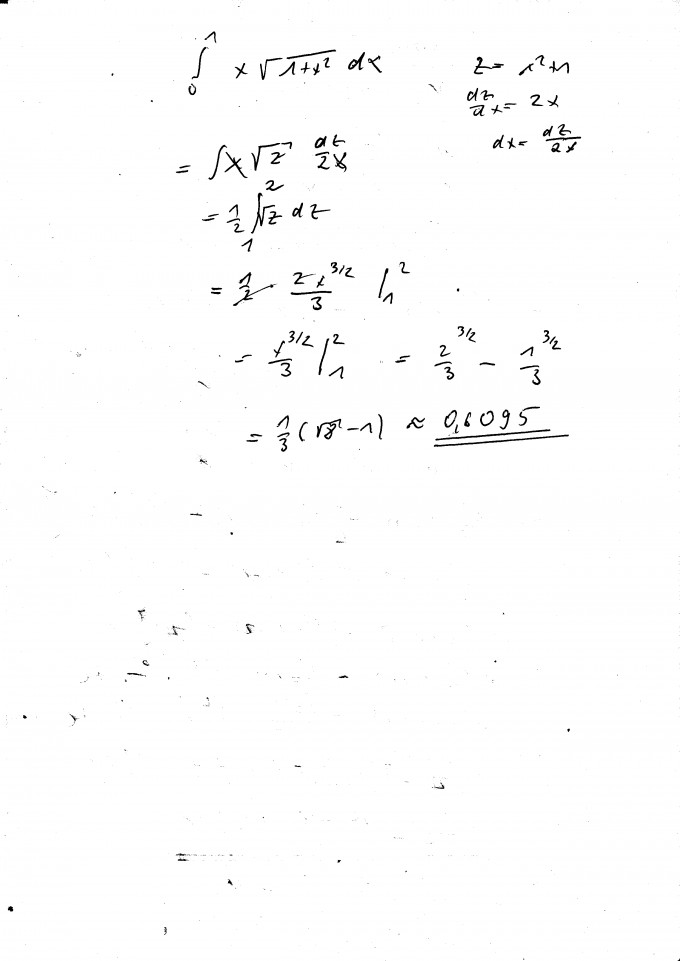 ∫₀¹ x √(1+x²) dx    z = x²+1
dz/dx = 2x
= ∫ x √z dz/2x    dx = dz/2x
= 1/2 ∫₁² √z dz
= 1/2 · 2x^(3/2)/3 |₁²
= x^(3/2)/3 |₁² = 2^(3/2)/3 − 1^(3/2)/3
= 1/3 (√8 − 1) ≈ 0,6095